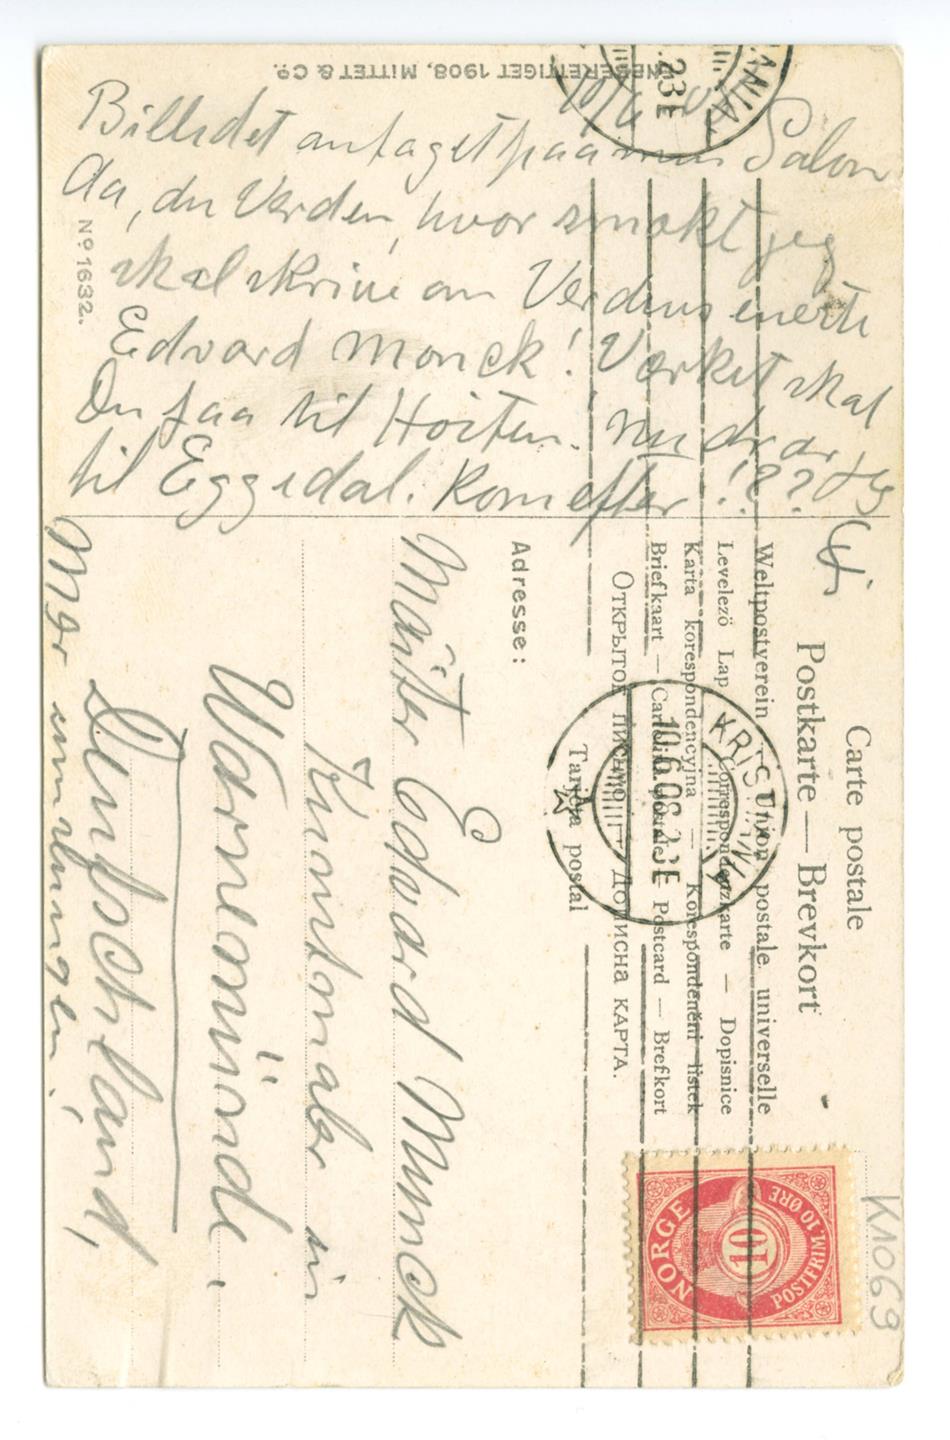 ENEBERETTIGET 1908, MITTET & Cº.
Nº 1632.
10/6
Billedet antaget paa min Salon
da, du Verden, hvor smukt jeg
skal skrive om Verdens eneste
Edvard Monck! Værket skal
Du faa til Høsten. Nu drar jeg
til Eggedal. Kom efter!???
Carte postale
Postkarte — Brevkort
Weltpostverein Union postale universelle
Levelezö Lap Correspondenzkarte — Dopisnice
Karta korespondencyjna — Korespondenční lístek
Briefkaart — Cartolina postale — Postcard — Brefkort
Открытое письмо — Дописна карта.
Tarjeta postal
Adresse:
KRISTIANIA
10.6.08. 2-3 E
NORGE
10
POSTFRIM. 10 ØRE
K1069
Maister Edvard Munck
Kunstmaler in
Warnemünde.
Deutschland,